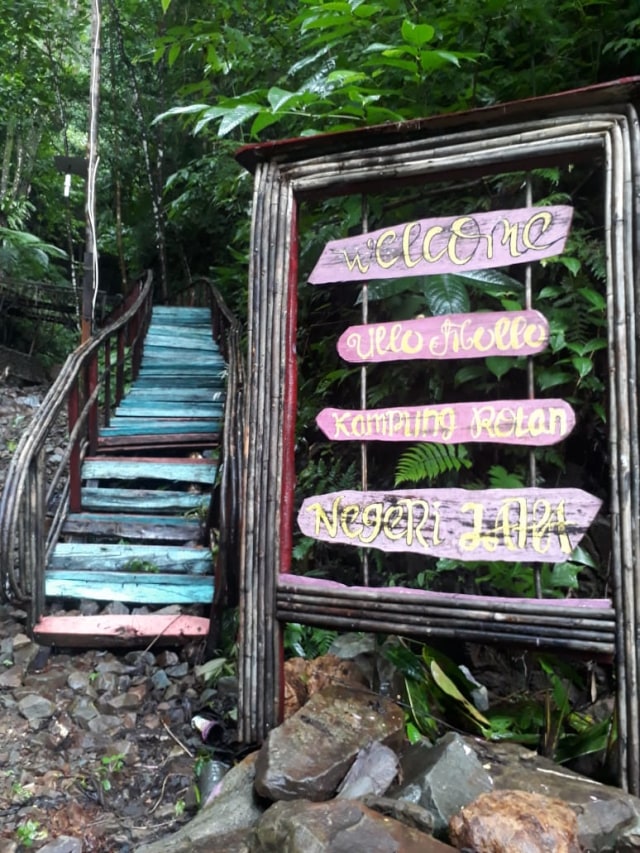 Welcome
Ullo Mollo
Kampung Rotan
Negeri Jaya